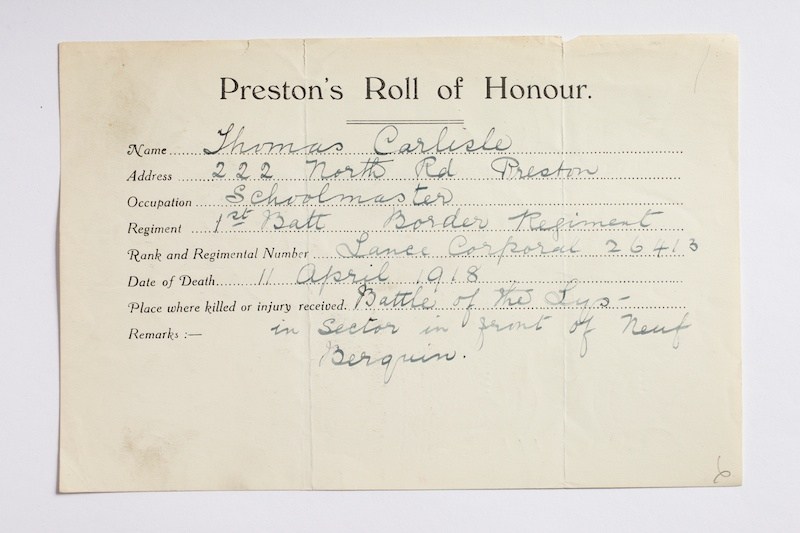 Preston's Roll of Honour.
Name Thomas Carlisle
Address 222 North Rd Preston
Occupation Schoolmaster
Regiment 1st Batt Border Regiment
Rank and Regimental Number Lance Corporal 26413
Date of Death 11 April 1918
Place where killed or injury received. Battle of the Lys -
Remarks :— in sector in front of Neuf
Berquin.
6